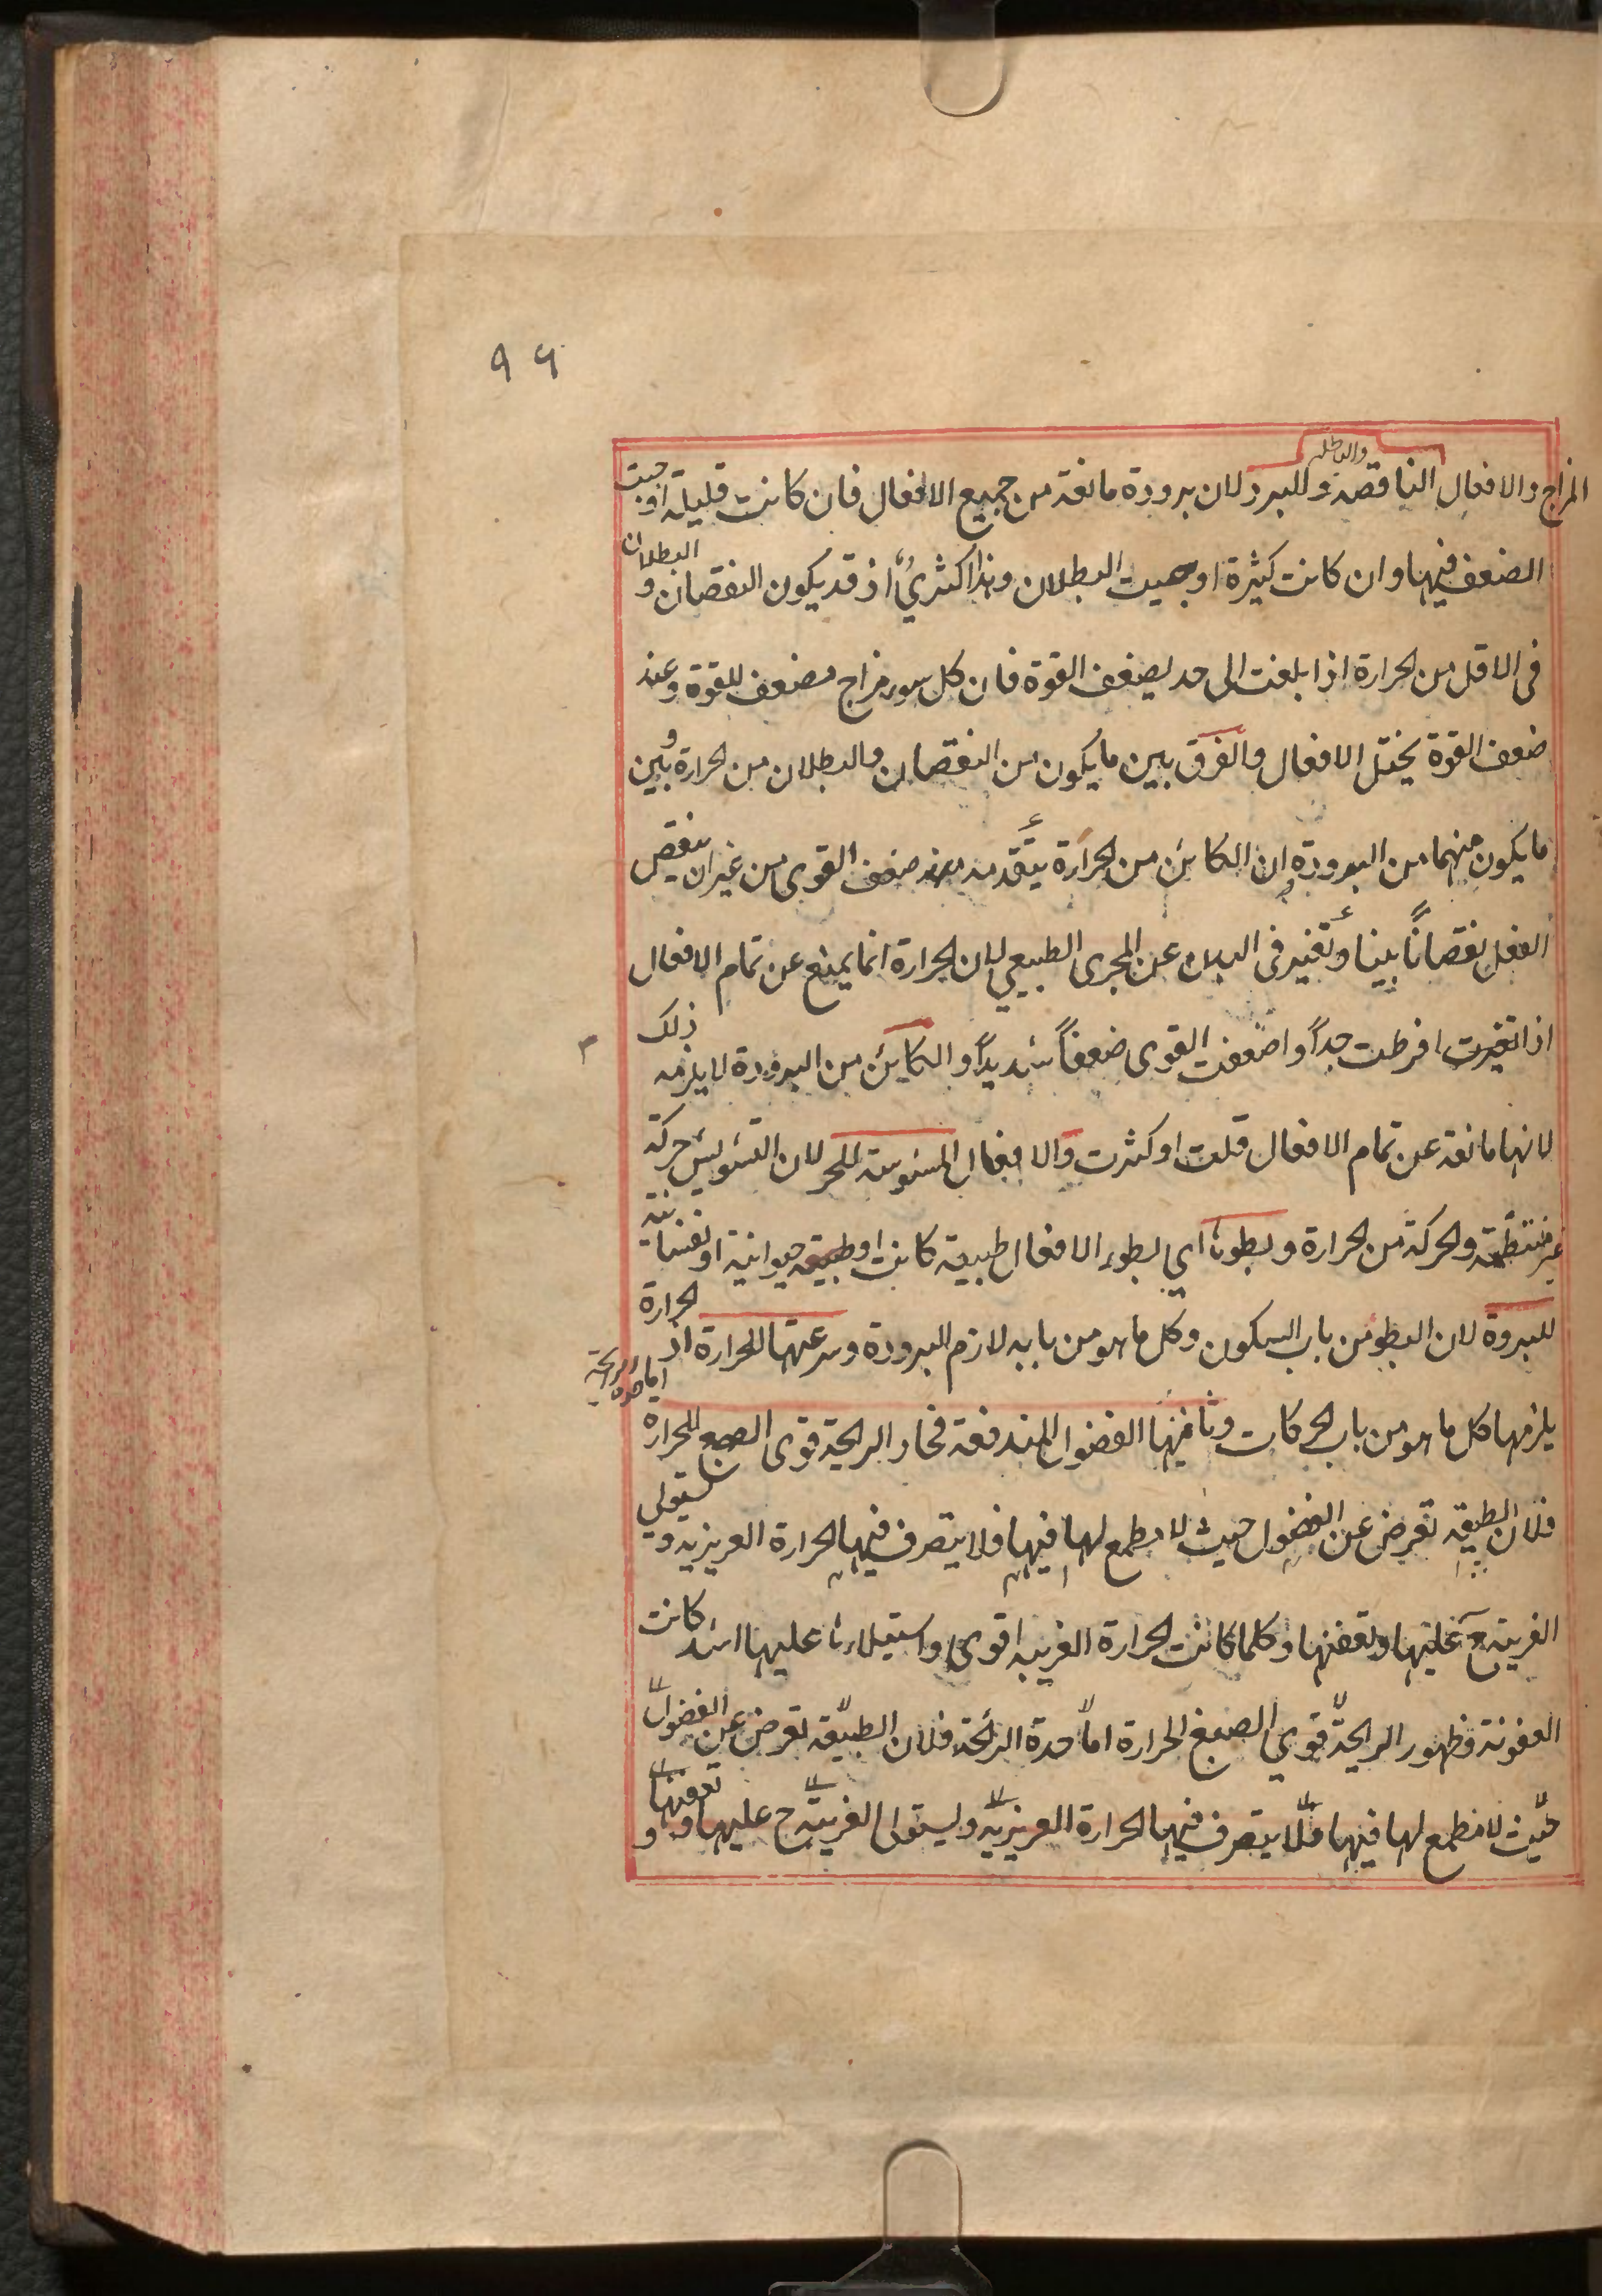 ٩٩
والباطلة
المزاج والافعال الناقصة وللبرد لان برودة مانعة من جميع الافعال فان كانت قليلة اوجبت
الضعف فيها وان كانت كثيرة اوجبت البطلان وهذا اكثري اذ قد يكون النقصان و البطلان
فى الاقل من الحرارة اذا بلغت الى حد يضعف القوة فان كل سوء مزاج مضعف للقوة وعند
ضعف القوة يختل الافعال والفرق بين ما يكون من النقصان والبطلان من الحرارة وبين
ما يكون منهما من البرودة ان الكائن من الحرارة يتقدمه ضعف القوى من غير ان ينقص
الفعل نقصاناً بينا وتغير فى البدن عن المجرى الطبيعي لان الحرارة انما يمنع عن تمام الافعال
اذا تغيرت افرطت جداً واضعفت القوى ضعفاً شديداً والكائن من البرودة لا يلزمه ذلك
لانها مانعة عن تمام الافعال قلت او كثرت والافعال المشوشة للحر لان التشويش حركة
غير منتظمة والحركة من الحرارة وبطوءها اي بطوء الافعال طبيعية كانت او حيوانية او نفسانية
للبرودة لان البطوء من باب السكون وكل ما هو من بابه لازم البرودة وسرعتها للحرارة اذ الحرارة
يلزمها كل ما هو من باب الحركات وثامنها الفضول المندفعة فحاد الرايحة قوى الصبغ للحرارة
اما حدة الرايحة
فلان الطبيعة تعرض عن الفضول حيث لا مطمع لها فيها فلا يتصرف فيها الحرارة الغريزية و يستولي
الغريبة ح عليها وتعفنها وكلما كانت الحرارة الغريبة اقوى واستيلاءها عليها اشد كانت
العفونة وظهور الرايحة قوي الصبغ للحرارة اما حدة الرائحة فلان الطبيعة تعرض عن الفضول
حيث لا مطمع لها فيها فلا يتصرف فيها الحرارة الغريزية ويستولى الغريبة ح عليها و تعفنها و